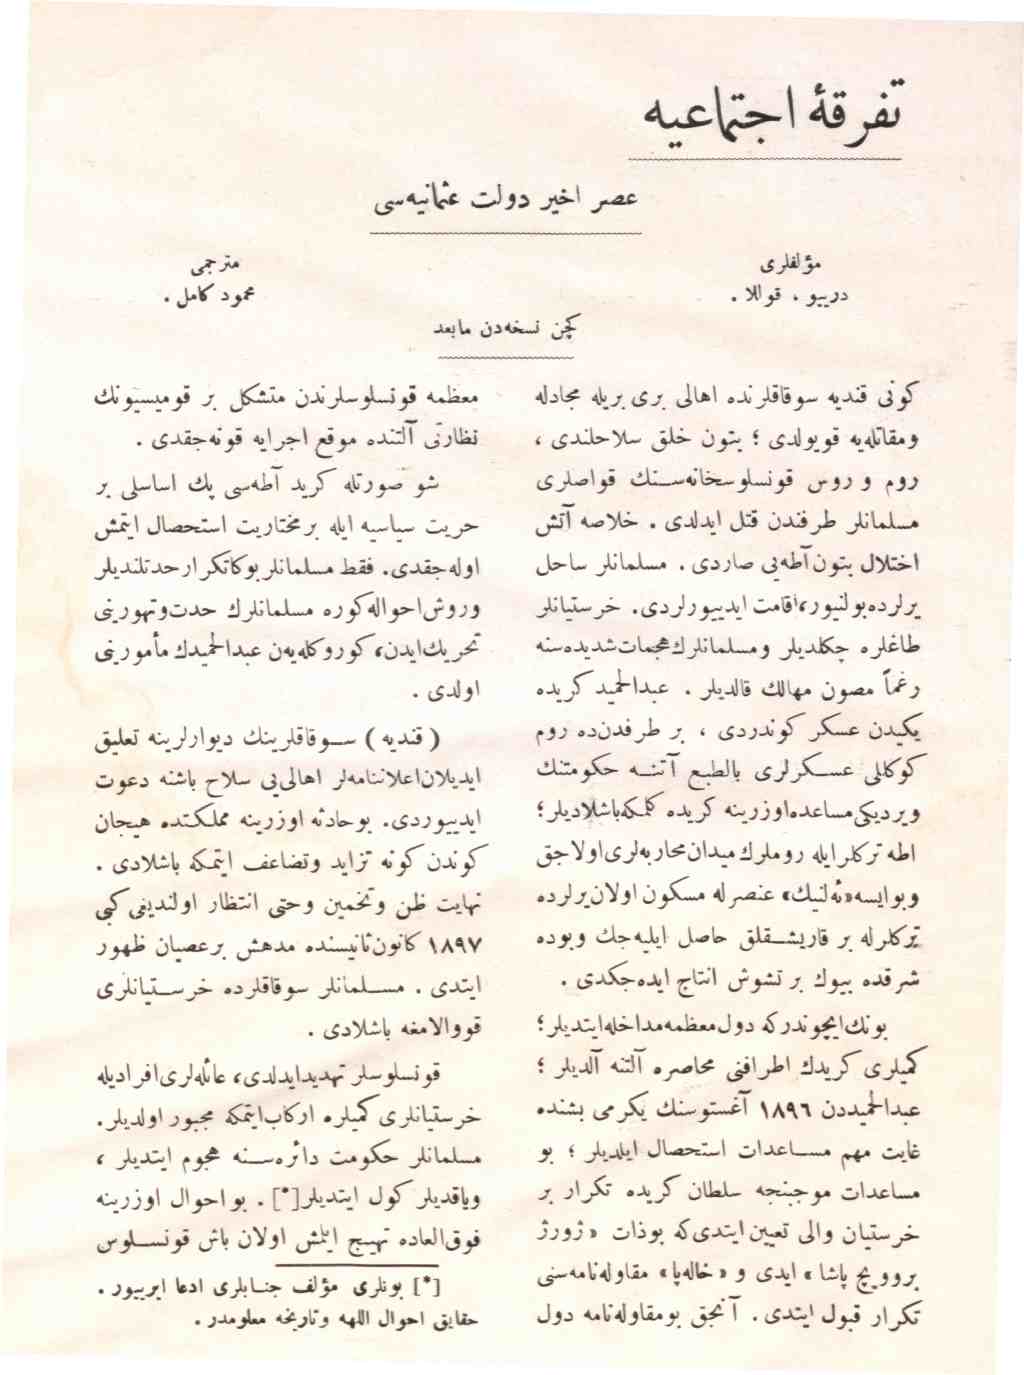 تفرقهٔ اجتماعیه
عصر اخیر دولت عثمانیه‌سی
مؤلفلری
دریو ، قواللا .
مترجمی
محمود کامل .
کچن نسخه‌دن مابعد
کونی قندیه سوقاقلرنده اهالی بری بریله مجادله
ومقاتله‌یه قویولدی ؛ بتون خلق سلاحلندی ،
روم و روس قونسلوسخانه‌سنك قواصلری
مسلمانلر طرفندن قتل ایدلدی . خلاصه آتش
اختلال بتون آطه‌یی صاردی . مسلمانلر ساحل
یرلرده بولنیور، اقامت ایدییورلردی. خرستیانلر
طاغلره چکلدیلر ومسلمانلرك هجمات شدیده‌سنه
رغماً مصون مهالك قالدیلر . عبدالحمید کریده
یکیدن عسکر کوندردی ، بر طرفدن‌ده روم
کوکللی عسکرلری بالطبع آتنه حکومتنك
ویردیکی مساعده اوزرینه کریده کلمکه باشلادیلر ؛
اطه ترکلر ایله روملرك میدان محاربه‌لری اولاجق
وبو ایسه «ئه‌لنیك» عنصرله مسکون اولان یرلرده
ترکلرله بر قاریشقلق حاصل ایلیه‌جك وبوده
شرقده بیوك بر تشوش انتاج ایده‌جکدی .
بونك ایچوندرکه دول معظمه مداخله ایتدیلر ؛
کمیلری کریدك اطرافنی محاصره آلتنه آلدیلر ؛
عبدالحمیددن ١٨٩٦ آغستوسنك یکرمی بشنده
غایت مهم مساعدات استحصال ایلدیلر ؛ بو
مساعدات موجبنجه سلطان کریده تکرار بر
خرستیان والی تعیین ایتدی که بوذات «ژورژ
بروویچ پاشا» ایدی و «خاله‌پا» مقاوله‌نامه‌سنی
تکرار قبول ایتدی . آنجق بومقاوله‌نامه دول
معظمه قونسلوسلرندن متشکل بر قومیسیونك
نظارتی آلتنده موقع اجرایه قونه‌جقدی .
شو صورتله کرید آطه‌سی پك اساسلی بر
حریت سیاسیه ایله برمختاریت استحصال ایتمش
اوله‌جقدی. فقط مسلمانلر بوکا تکرار حدتلندیلر
وروش احواله کوره مسلمانلرك حدت وتهورینی
تحریك ایدن، کوروکله‌یه‌ن عبدالحمیدك مأمورینی
اولدی .
( قندیه ) سوقاقلرینك دیوارلرینه تعلیق
ایدیلان اعلاننامه‌لر اهالی‌یی سلاح باشنه دعوت
ایدییوردی. بوحادثه اوزرینه مملکتده هیجان
کوندن کونه تزاید وتضاعف ایتمکه باشلادی .
نهایت ظن وتخمین وحتی انتظار اولندیغی کبی
١٨٩٧ کانون ثانیسنده مدهش برعصیان ظهور
ایتدی . مسلمانلر سوقاقلرده خرستیانلری
قووالامغه باشلادی .
قونسلوسلر تهدید ایدلدی، عائله‌لری افرادیله
خرستیانلری کمیلره ارکاب ایتمکه مجبور اولدیلر.
مسلمانلر حکومت دائره‌سنه هجوم ایتدیلر ،
ویاقدیلر کول ایتدیلر[*] . بو احوال اوزرینه
فوق‌العاده تهییج ایلمش اولان باش قونسلوس
[*] بونلری مؤلف جنابلری ادعا ایدییور .
حقایق احوال اللهه وتاریخه معلومدر .